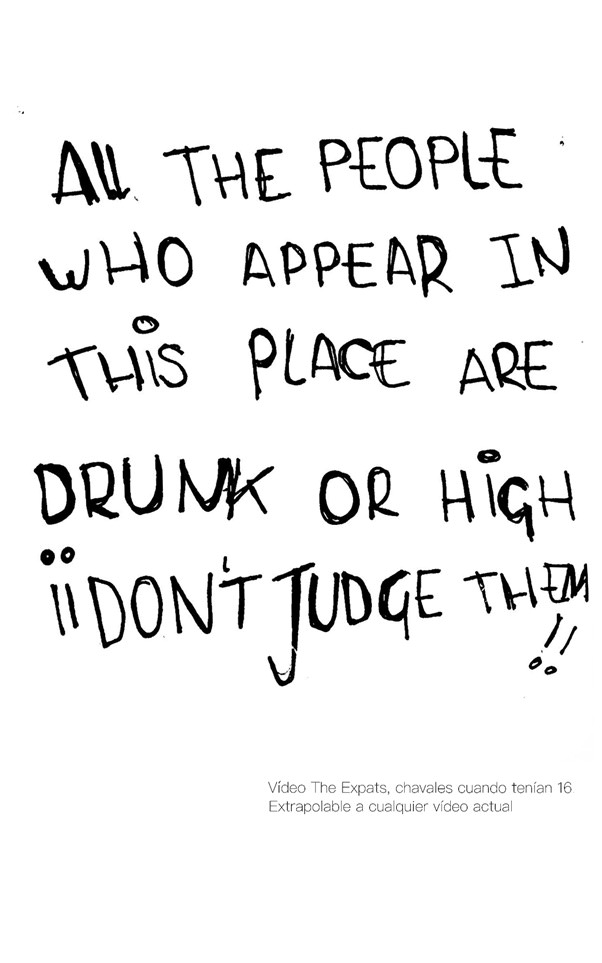 All THE PEOPLE
WHO APPEAR IN
THiS PLACE ARE
DRUNK OR HiGH
¡¡DON'T JUDGE THEM!!
Vídeo The Expats, chavales cuando tenían 16
Extrapolable a cualquier vídeo actual